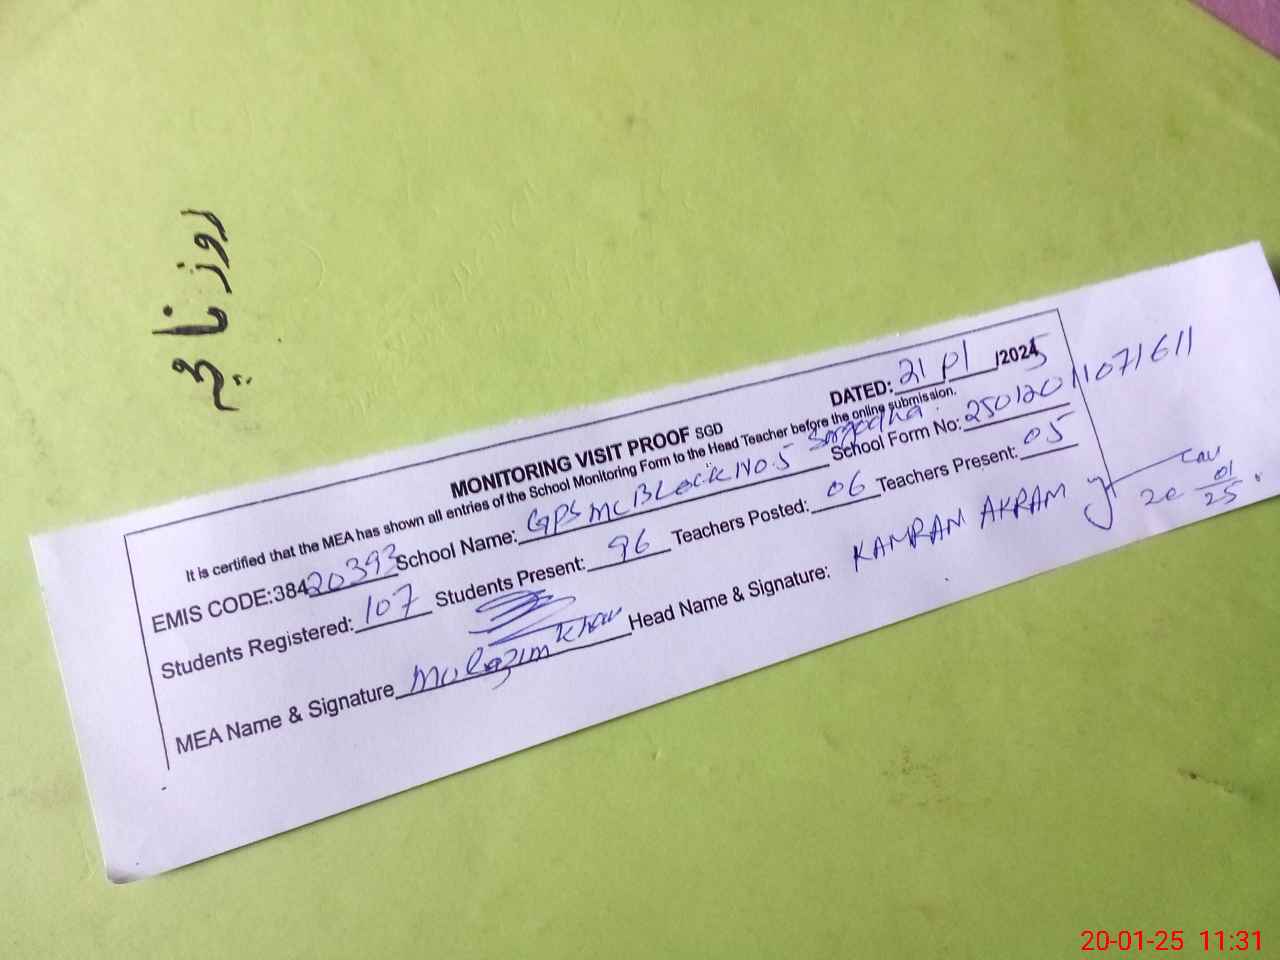 روز نامچہ
MONITORING VISIT PROOF SGD
DATED: 21 01 /2025
It is certified that the MEA has shown all entries of the School Monitoring Form to the Head Teacher before the online submission.
EMIS CODE:38420393 School Name: GPS MC Block No.5 Sargodha School Form No: 25012011071611
Students Registered: 107 Students Present: 96 Teachers Posted: 06 Teachers Present: 05
MEA Name & Signature Khan Head Name & Signature: KAMRAM AKRAM
20 01 25
20-01-25 11:31